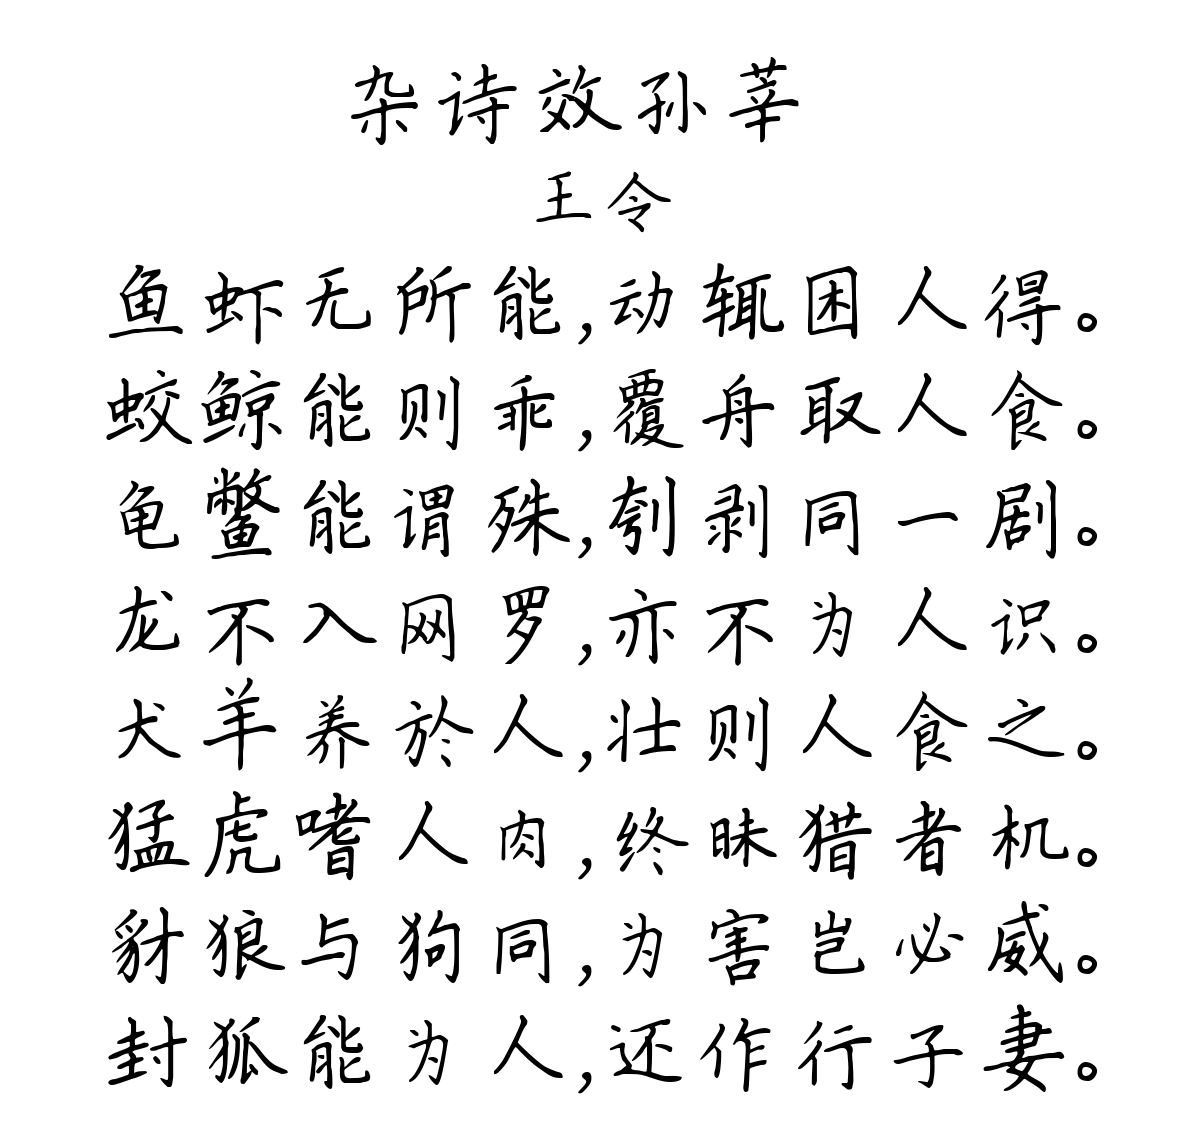 杂诗效孙莘
王令
鱼虾无所能,动辄困人得。
蛟鲸能则乖,覆舟取人食。
龟鳖能谓殊,刳剥同一剧。
龙不入网罗,亦不为人识。
犬羊养於人,壮则人食之。
猛虎嗜人肉,终昧猎者机。
豺狼与狗同,为害岂必威。
封狐能为人,还作行子妻。